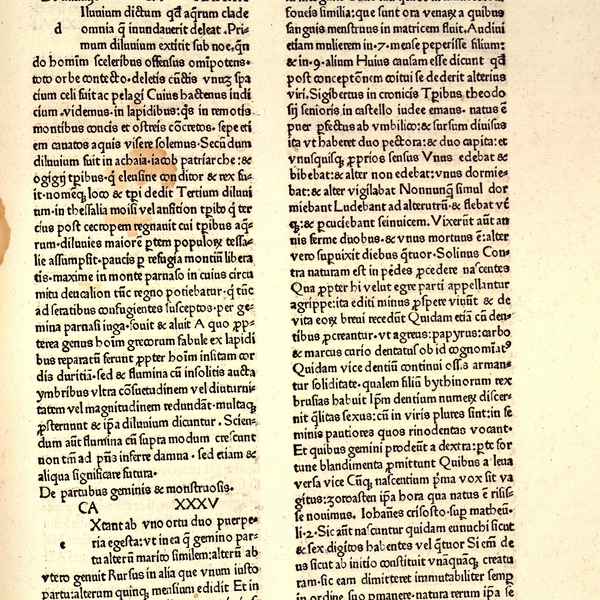 lluvium dictum qđ aqrum clade
d omnia q̃ inundauerit deleat .Pri-
mum diluuium extitit sub noe.qñ
do hoim̃ sceleribus offensus omĩpotens.
toto orbe contecto.deletis cũctis vnuz spa
cium celi fuit ac pelagi Cuius hactenus indi
cium .videmus.in lapidibus:q̃s in remotis
montibus concis et ostreis cõcretos. sepe eti
em cauatos aquis visere solemus.Secũdum
diluuium fuit in achaia.iacob patriarche :&
ogigij tp̃ibus.q̃ eleusine conditor & rex fu-
it.nomẽq̧ loco & tp̃i dedit Tertium diluui
um.in thessalia moisi vel anfition tp̃ibo q̃ ter
cius post cecropem regnauit cui tp̃ibus aq̃-
rum.diluuies maiorẽ p̱tem populoꝝ tessa-
lie assumpsit.paucis p̱ refugia montiũ libera
tis.maxime in monte parnaso in cuius circu
mitu deucalion tũc regno potiebatur.q̃ tũc
ad se ratibus confugientes susceptos.per ge-
mina parnasi iuga.fouit & aluit A quo p̱p-
terea genus hoim̃ grecorum fabule ex lapidi
bus reparatũ ferunt p̱pter hoim̃ insitam cor
dis duritiã.sed & flumina cũ insolitis aucta
ymbribus vltra cõsuetudinem vel diuturni-
tatem vel magnitudinem redundãt.multaq̧
p̱sternunt & ip̃a diluuium dicuntur . Scien-
dum aũt flumina cũ supra modum crescunt
non tm̃ ad p̃ñs inferre damna . sed etiam &
aliqua significare futura.
De partubus geminis & monstruosis.
CA XXXV
Xtant ab vno ortu duo puerpe-
e ria egesta: vt in ea q̃ gemino par-
tu alterũ marito similem: alterũ ab
vtero genuit Rursus in alia que vnum iusto
partu: alterum quinq̧ mensium edidit Et in
foucis similia: que sunt ora venaꝝ a quibus
sanguis menstruus in matricem fluit. Audiui
etiam mulierem in.7.mense peperisse filium:
& in.9.alium Huius causam esse dicunt qđ
post conceptõnem coitui se dederit alterius
viri.Sigibertus in cronicis Tp̃ibus theodo
sij senioris in castello iudee emaus. natus ẽ
puer p̱fectus ab vmbilico: & sursum diuisus
ita vt haberet duo pectora: & duo capita: et
vnusquisq̧ p̱prios sensus Vnus edebat &
bibebat: & alter non edebat: vnus dormie-
bat: & alter vigilabat Nonnunq̃ simul dor
miebant Ludebant ad alterutrũ. & flebat vt̃
q̧: & p̱cuciebant seinuicem. Vixerũt aũt an
nis ferme duobus. & vnus mortuus ẽ: alter
vero supuixit diebus q̃tuor. Solinus Con-
tra naturam est in pẽdes p̱cedere nascentes
Qua p̱pter hi velut egre parti appellantur
agrippe: ita editi minus p̱spere viuũt & de
vita eoꝝ breui recedũt Quidam etiã cũ den-
tibus p̱creantur. vt agreus: papyrus: carbo
& marcus curio dentatus ob id cognomĩatꝰ
Quidam vice dentiũ continui oss̃s arman-
tur soliditate. qualem filiũ bythinorum rex
brusias habuit Ip̃m dentium numerꝝ discer-
nit q̃litas sexus: cũ in viris plures sint: in fe
minis pautiores quos rinodentas vocant.
Et quibus gemini prodeũt a dextra: p̱te for
tune blandimenta p̱mittunt Quibus a leua
versa vice Cũq̧ nascentium p̃ma vox sit va
gitus: zoroasten ip̃a hora qua natus ẽ risis-
se nouimus. Iohañes crisosto. sup matheũ.
li.2. Sic aũt nascuntur quidam eunuchi sicut
& sex digitos habentes vel q̃tuor Si eñ de
us sicut ab initio constituit vnãquãq̧ creatu
ram. sic eam dimitteret immutabiliter semp̱
in ordine suo p̱manere. natura rerum ip̃a se